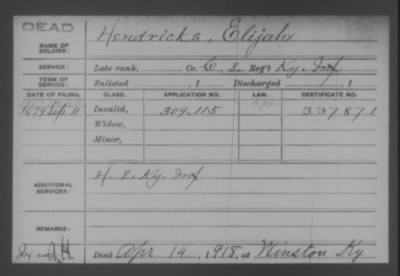 DEAD
NAME OF SOLDIER: Hendricks, Elijah
SERVICE: Late rank, Co. C, 8 Reg't Ky. Inf
TERM OF SERVICE: Enlisted , 1 Discharged , 1
DATE OF FILING. CLASS. APPLICATION NO. LAW. CERTIFICATE NO.
1879 Sep 11 Invalid, 309.115 337871
Widow,
Minor,
ADDITIONAL SERVICES: H. 8. Ky. Inf
REMARKS:
Died Apr 14, 1918, at Winston Ky